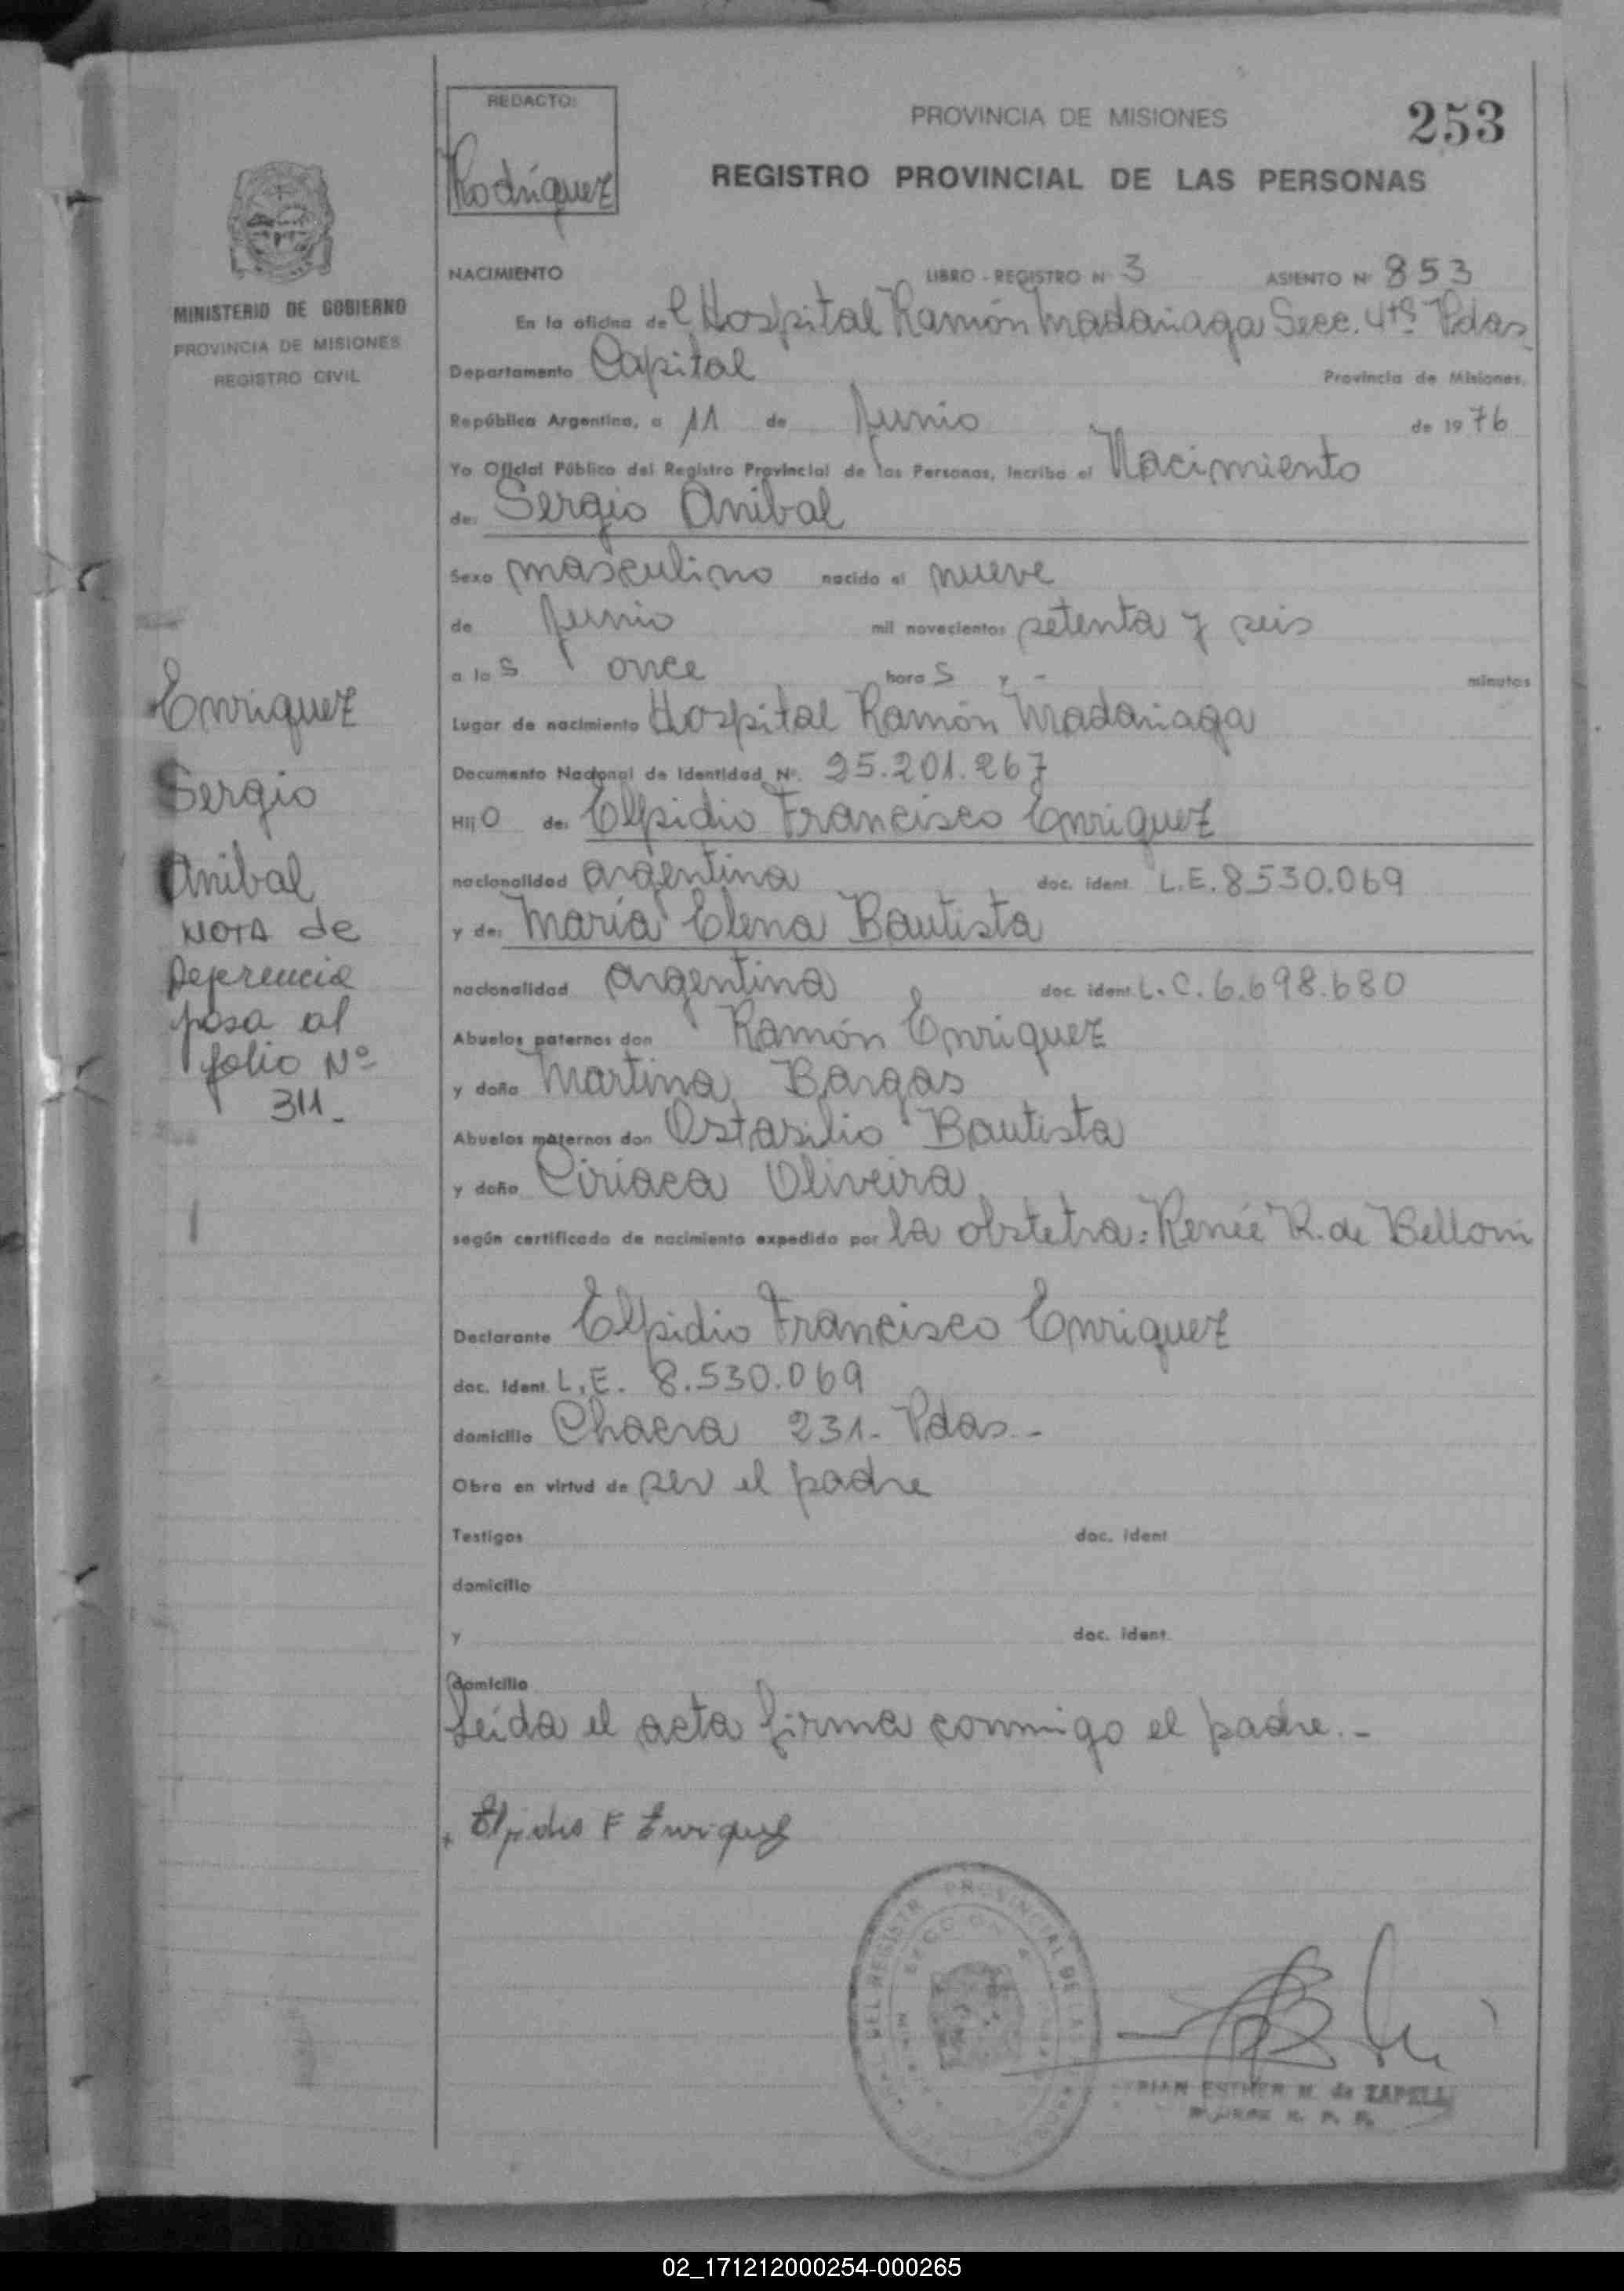 REDACTO:
Rodríguez
PROVINCIA DE MISIONES
253
REGISTRO PROVINCIAL DE LAS PERSONAS
MINISTERIO DE GOBIERNO
PROVINCIA DE MISIONES
REGISTRO CIVIL
NACIMIENTO LIBRO - REGISTRO Nº 3 ASIENTO Nº 853
En la oficina del Hospital Ramón Madariaga Secc. 4ta Pdas.
Departamento Capital Provincia de Misiones,
República Argentina, a 11 de Junio de 1976
Yo Oficial Público del Registro Provincial de las Personas, incribo el Nacimiento
de: Sergio Anibal
Sexo masculino nacido el nueve
de Junio mil novecientos setenta y seis
a las once horas y - minutos
Lugar de nacimiento Hospital Ramón Madariaga
Documento Nacional de Identidad Nº. 25.201.267
Hijo de: Elpidio Francisco Enriquez
nacionalidad argentina doc. ident. L.E. 8.530.069
y de: María Elena Bautista
nacionalidad argentina doc. ident. L.C. 6.698.680
Abuelos paternos don Ramón Enriquez
y doña Martina Bargas
Abuelos maternos don Ostasilio Bautista
y doña Ciriaca Oliveira
según certificado de nacimiento expedido por la obstetra: Renée R. de Belloni
Declarante Elpidio Francisco Enriquez
doc. Ident. L.E. 8.530.069
domicilio Chacra 231- Pdas.-
Obra en virtud de ser el padre
Testigos doc. ident.
domicilio
y doc. ident.
domicilio
Leída el acta firma conmigo el padre.-
Elpidio F Enriquez
Enriquez
Sergio
Anibal
NOTA de
Referencia
pasa al
folio Nº
311-
PROVINCIAL DE LAS
SECCION
ESTHER M. de ZAPELLI
02_171212000254-000265